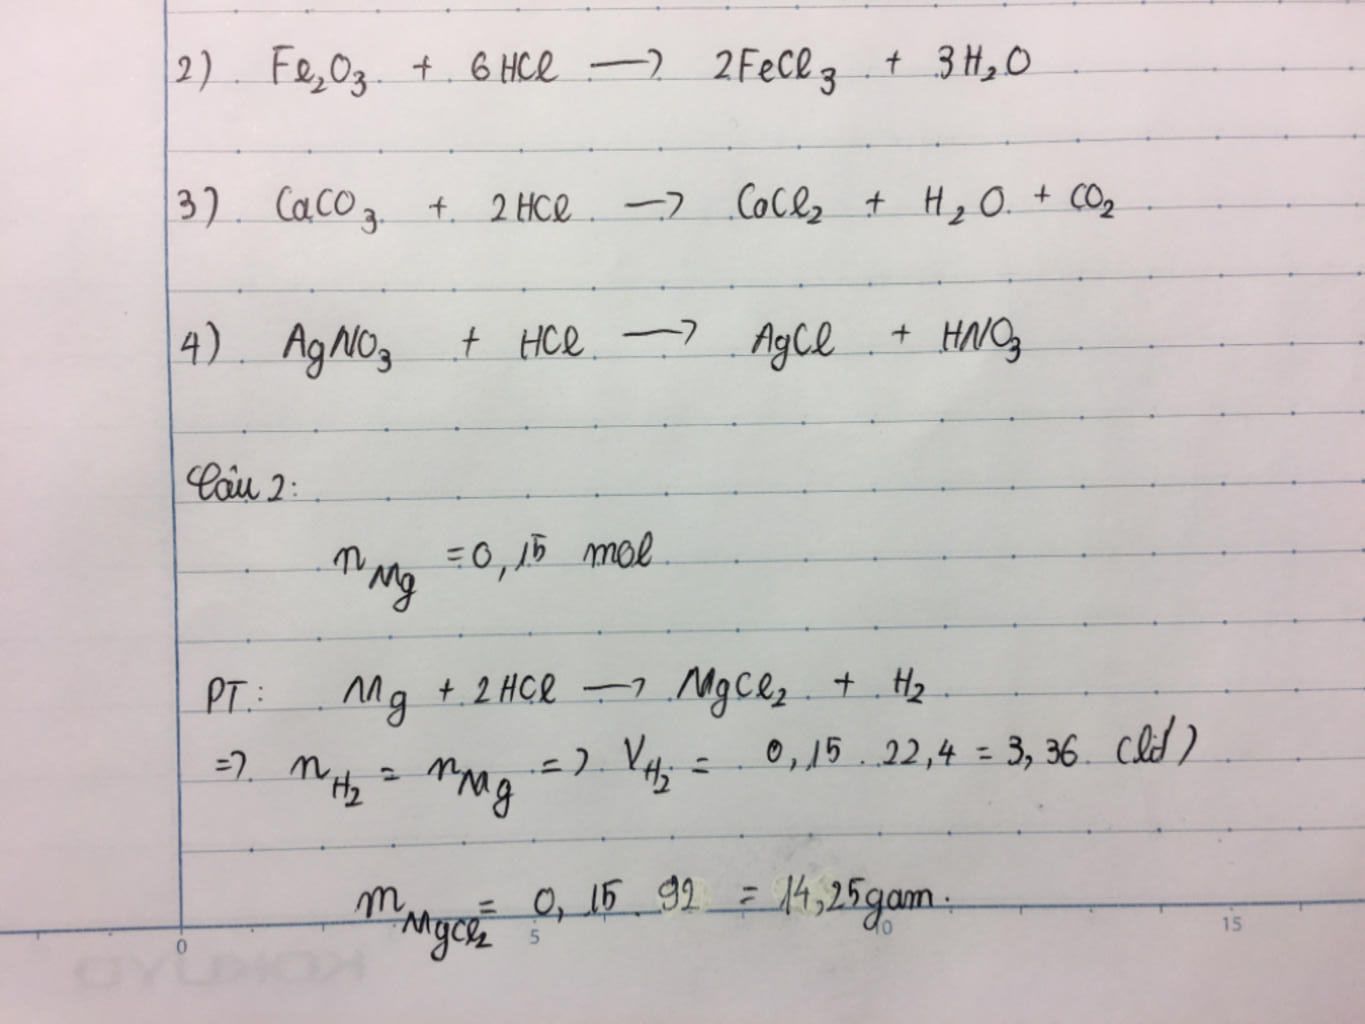 2) Fe₂O₃ + 6HCl → 2FeCl₃ + 3H₂O
3) CaCO₃ + 2HCl → CaCl₂ + H₂O + CO₂
4) AgNO₃ + HCl → AgCl + HNO₃
Câu 2:
n Mg = 0,15 mol
PT: Mg + 2HCl → MgCl₂ + H₂
=> n H₂ = n Mg => V H₂ = 0,15 . 22,4 = 3,36 (lít)
m MgCl₂ = 0,15 . 92 = 14,25gam.
0 5 10 15
KOKUYO